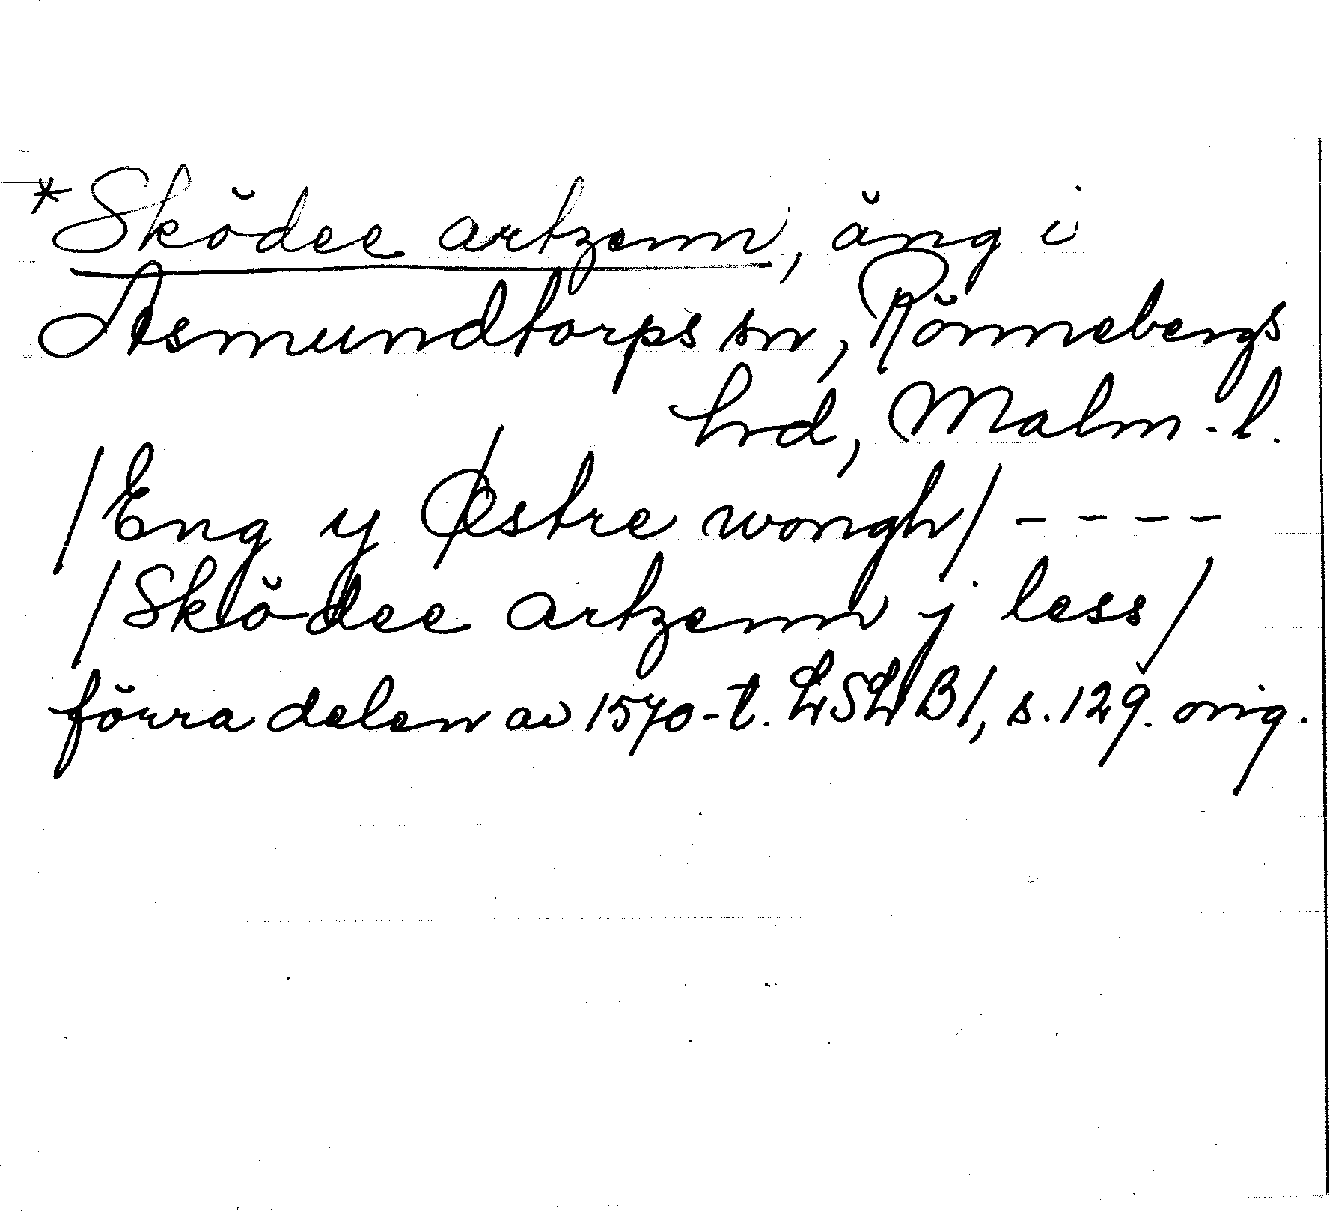 *Sködee artzenn, äng i
Asmundtorps sn, Rönnebergs
hrd, Malm-l.
/Eng y Østre wongh/ - - - -
/Sködee artzenn j less/
förra delen av 1570-t. LSLB1, s. 129. orig.